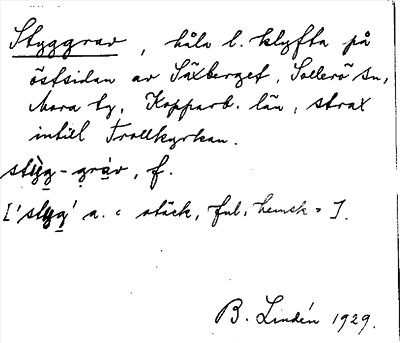 Styggrav, håla l. klyfta på
östsidan av Säxberget, Sollerö sn,
Mora tg, Kopparb. län, strax
intill Trollkyrkan.
styg-gràv, f.
['styg' a. = stäck, ful, hemsk = ].
B. Lindén 1929.